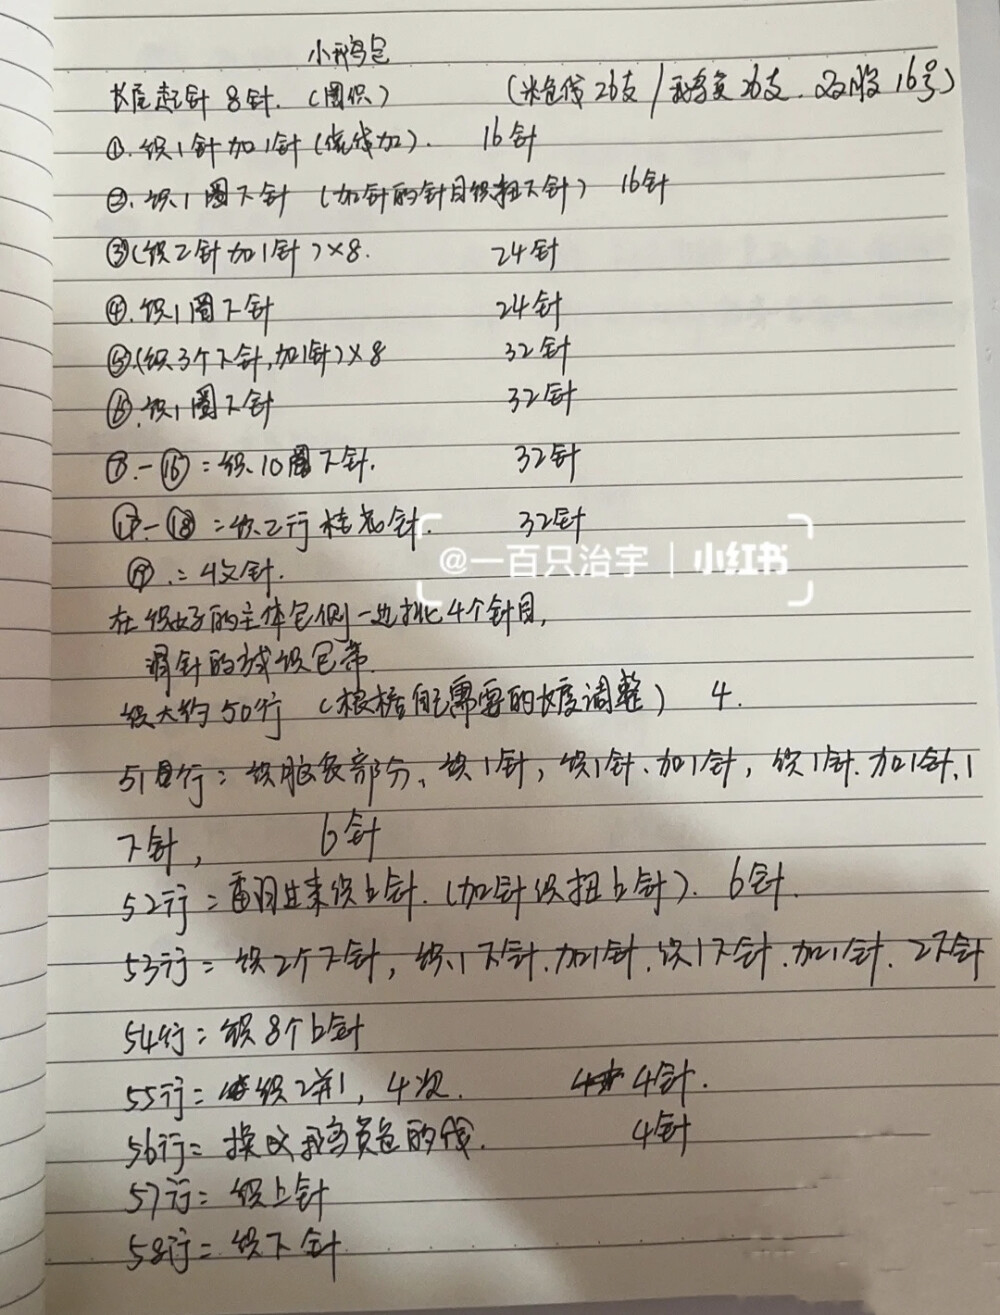 小鹅包
长尾起针 8针. (圈织) (米色线26支/鹅黄26支. 双股16号)
①. 织1针加1针(绕线加). 16针
②. 织1圈下针 (加针的针目织扭下针) 16针
③(织2针加1针)×8. 24针
④. 织1圈下针 24针
⑤(织3个下针,加1针)×8 32针
⑥. 织1圈下针 32针
⑦.-⑯: 织10圈下针. 32针
⑰-⑱ = 织2行桂花针. 32针
⑲.= 收针.
@一百只治宇 | 小红书
在织好的主体包侧一边挑4个针目,
滑针的方式织包带
织大约50行 (根据自己需要的长度调整) 4.
51行: 织脑袋部分, 织1针, 织1针.加1针, 织1针.加1针.1
下针, 6针
52行: 翻过来织上针.(加针织扭上针). 6针.
53行= 织2个下针, 织1下针.加1针.织1下针.加1针. 2下针
54行: 织8个上针
55行= 织2并1, 4次. 4针.
56行= 换成鹅黄色的线. 4针
57行= 织上针
58行= 织下针